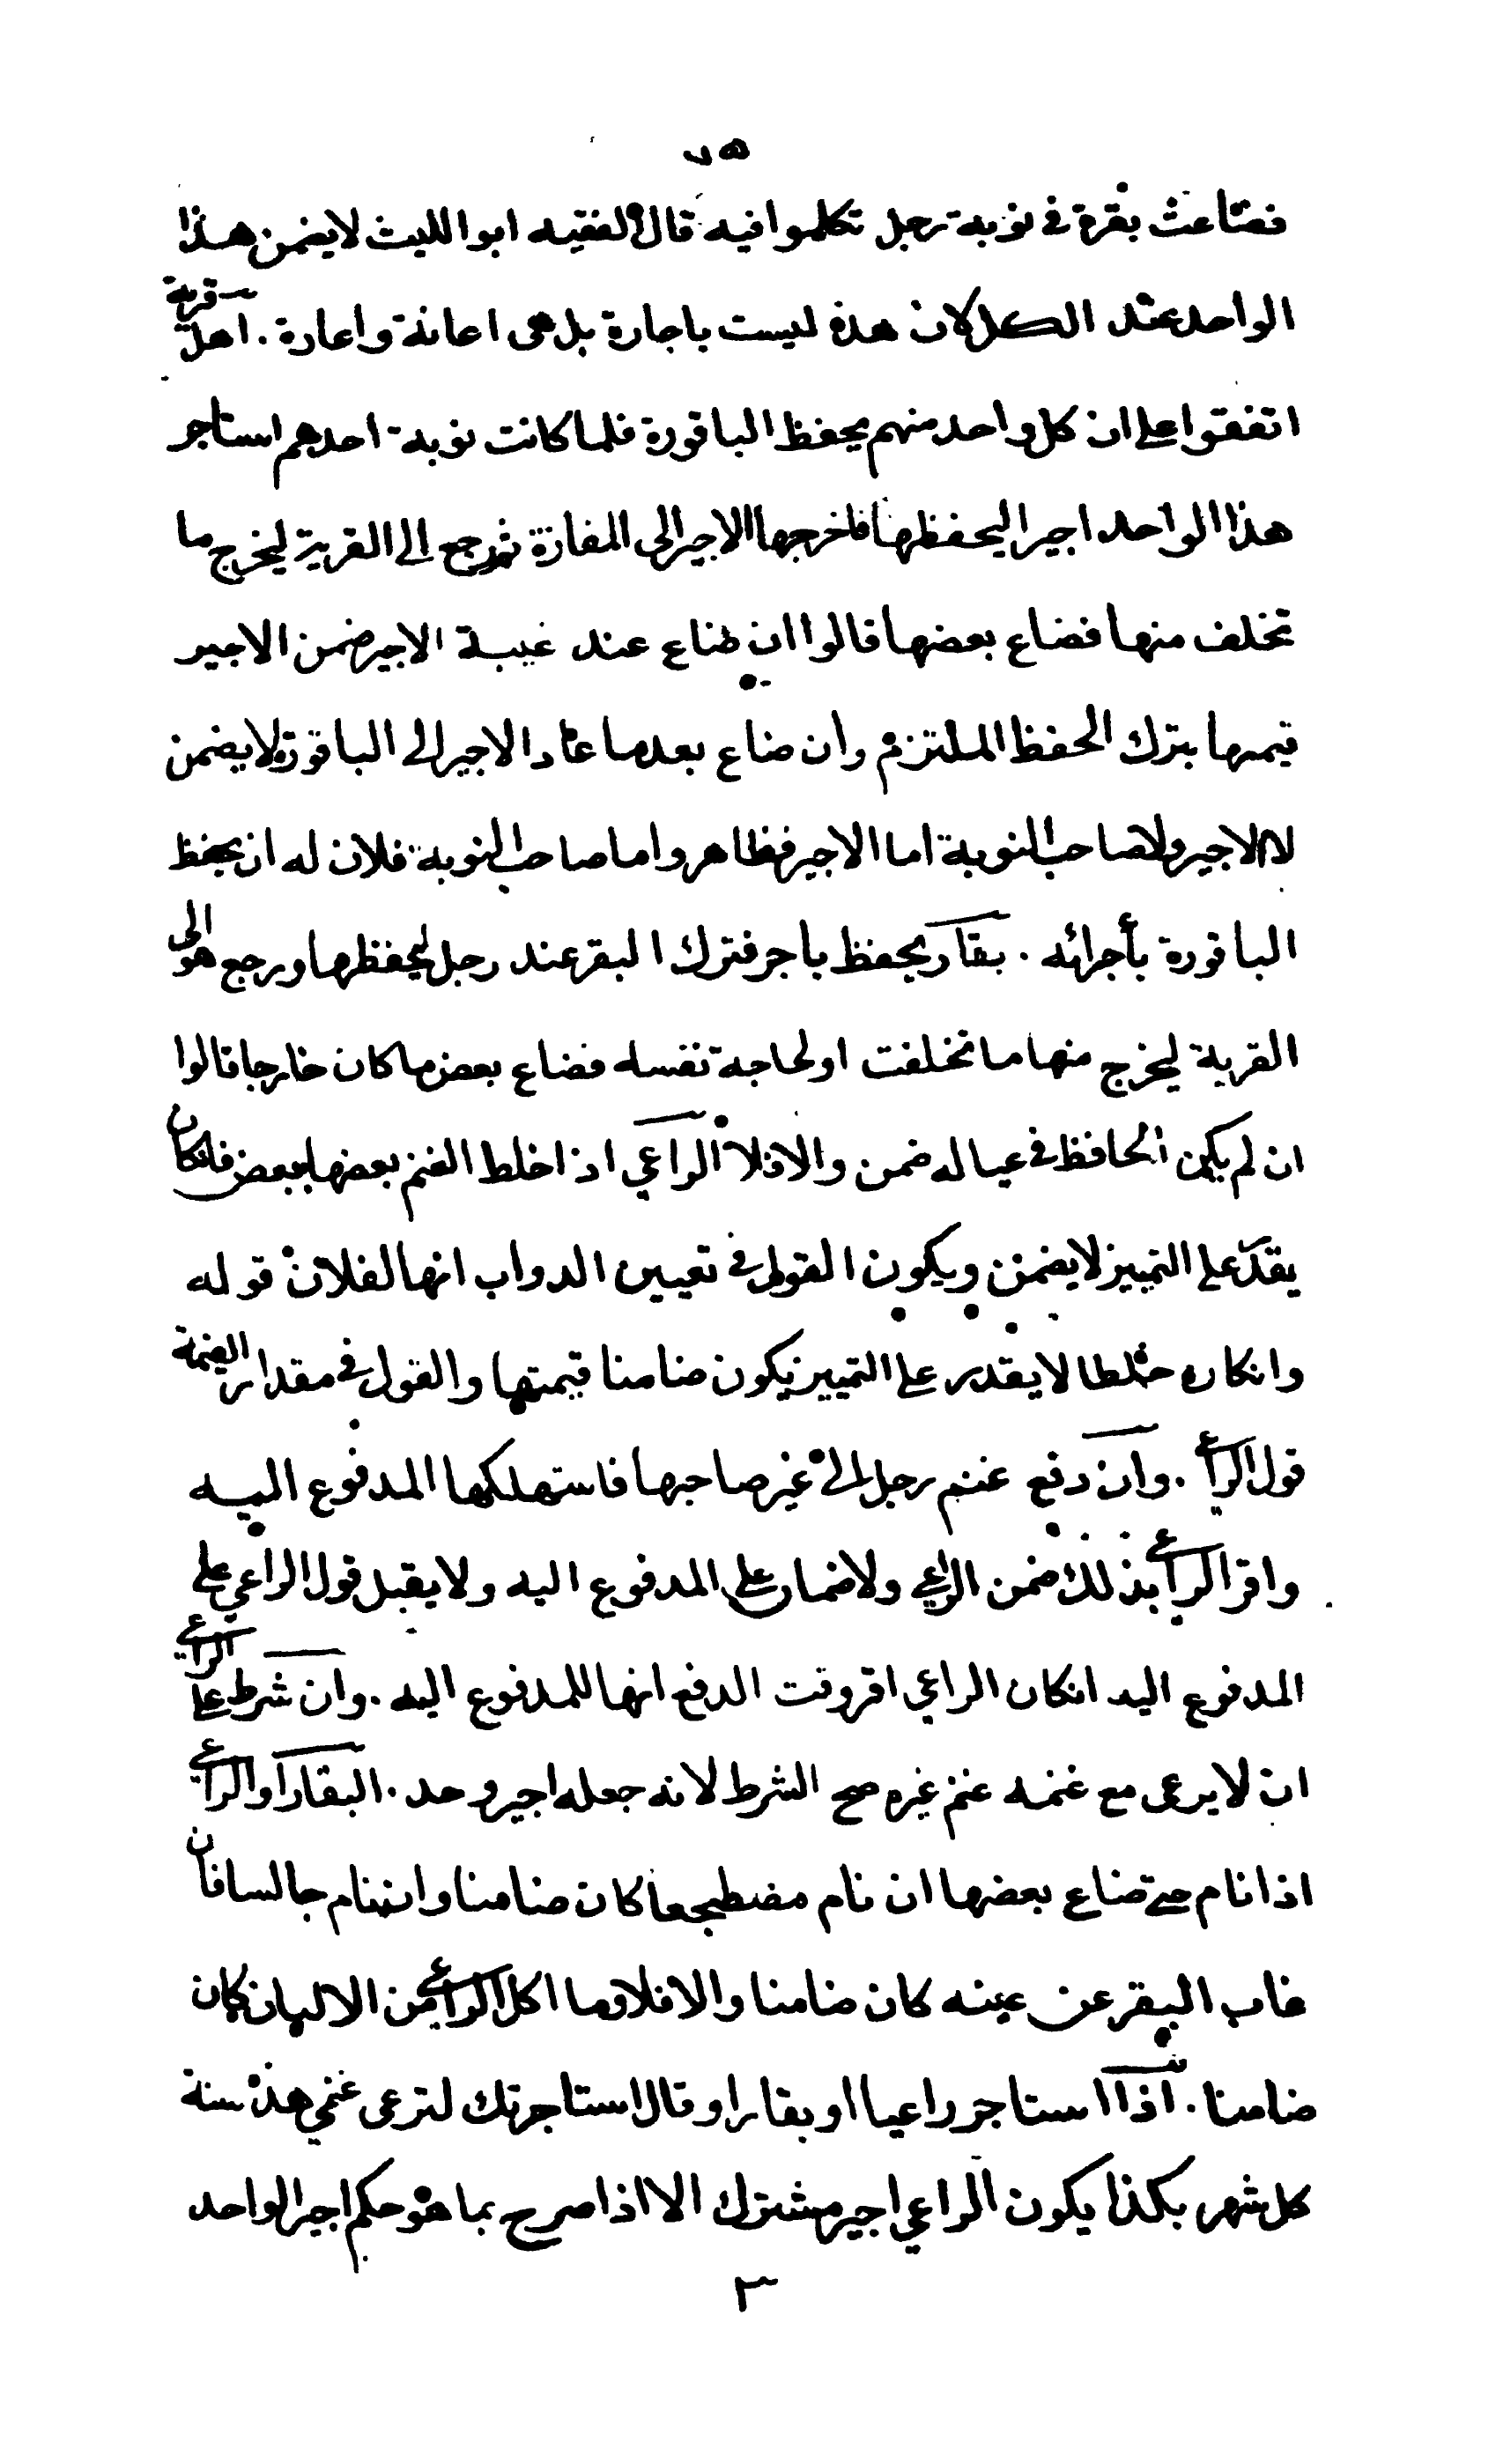 ٧٥
فضاعت بقرة في نوبة رجل تكلموا فيه قال الفقيه ابوالليث لايضمن هذا
الواحد عند الكل لان هذه ليست باجارة بل هى اعانة واعارة . اهل قرية
اتفقوا على ان كل واحد منهم يحفظ الباقورة فلما كانت نوبة احدهم استاجر
هذا الواحد اجيرا ليحفظها فاخرجها الاجير الى المفازة ثم رجع الى القرية ليخرج ما
تخلف منها فضاع بعضها قالوا ان ضاع عند غيبة الاجير ضمن الاجير
قيمها بترك الحفظ الملتزم وان ضاع بعدما عاد الاجير الى الباقورة لا يضمن
لا الاجير ولا صاحب النوبة اما الاجير فظاهر واما صاحب النوبة فلان له ان يحفظ
الباقورة بأجرائه . بقار يحفظ باجر فترك البقر عند رجل ليحفظها ورجع هو الى
القرية ليخرج منها ما تخلفت او لحاجة نفسه فضاع بعض ما كان خارجا قالوا
ان لم يكن الحافظ في عياله ضمن والا فلا الراعي اذا خلط الغنم بعضها ببعض فانكان
يقدر على التمييز لا يضمن ويكون القول في تعيين الدواب انها لفلان قوله
وانكان خلطا لا يقدر على التمييز يكون ضامنا قيمتها والقول في مقدار القيمة
قول الراعي . وان دفع غنم رجل الى غير صاحبها فاستهلكها المدفوع اليه
واقر الراعي بذلك ضمن الراعي ولا ضمان على المدفوع اليه ولا يقبل قول الراعي على
المدفوع اليه انكان الراعي اقر وقت الدفع انها للمدفوع اليه . وان شرط على الراعي
ان لا يرعى مع غنمه غنم غيره صح الشرط لانه جعله اجير وحد . البقار او الراعي
اذا نام حتى ضاع بعضها ان نام مضطجعا كان ضامنا وان نام جالسا فان
غاب البقر عن عينه كان ضامنا والا فلا وما اكل الراعي من الالبان كان
ضامنا . اذا استاجر راعيا او بقارا وقال استاجرتك لترعى غنمي هذه سنة
كل شهر بكذا يكون الراعي اجير مشترك الا اذا صرح بما هو حكم اجير الواحد
٣